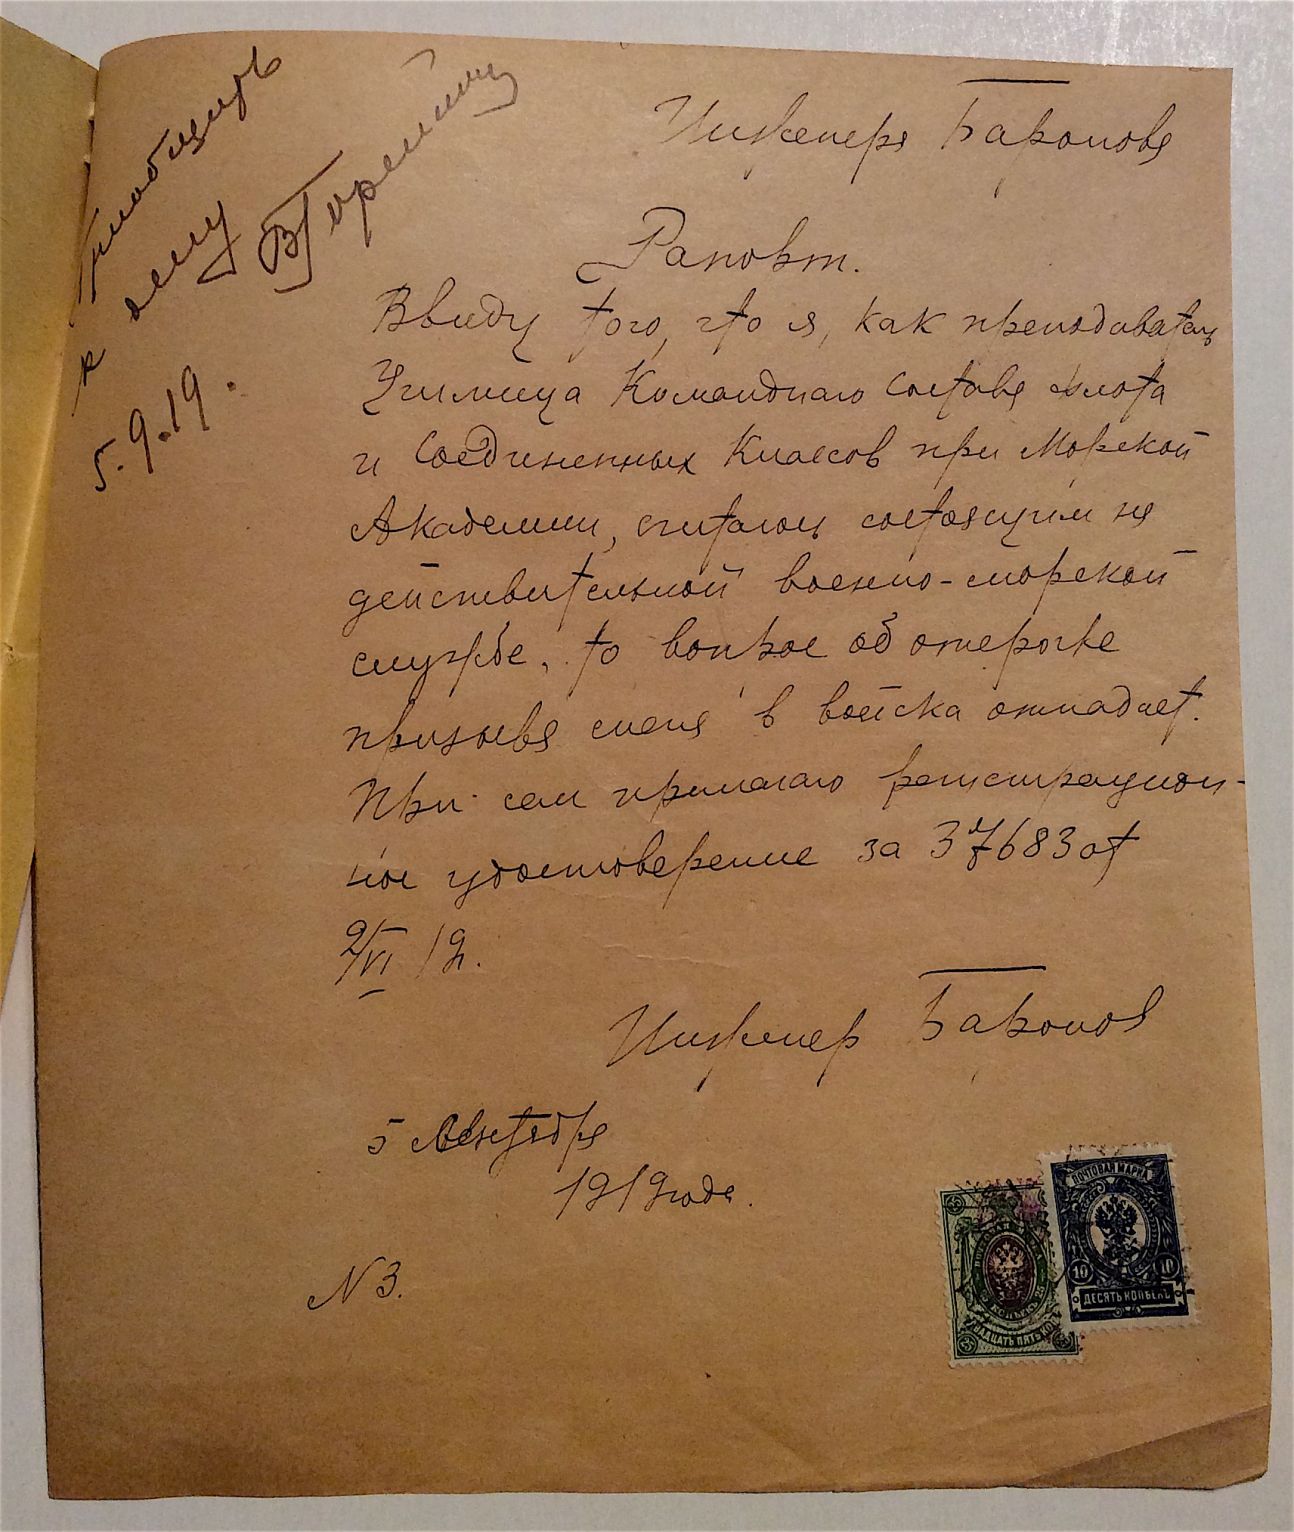 Приобщить
к делу
5.9.19.
Инженера Баронова
Рапорт.
Ввиду того, что я, как преподаватель
Училища Командного Состава флота
и Соединенных Классов при Морской
Академии, считаюсь состоящим на
действительной военно-морской
службе, то вопрос об отсрочке
призыва меня в войска отпадает.
При сем прилагаю регистрацион-
ное удостоверение за 37683 от
2/VI 19.
Инженер Баронов
5 Сентября
1919 года.
N 3.
ПОЧТОВАЯ МАРКА
10 10
ДЕСЯТЬ КОПѢЕКЪ
25
ДВАДЦАТЬ ПЯТЬ КОП